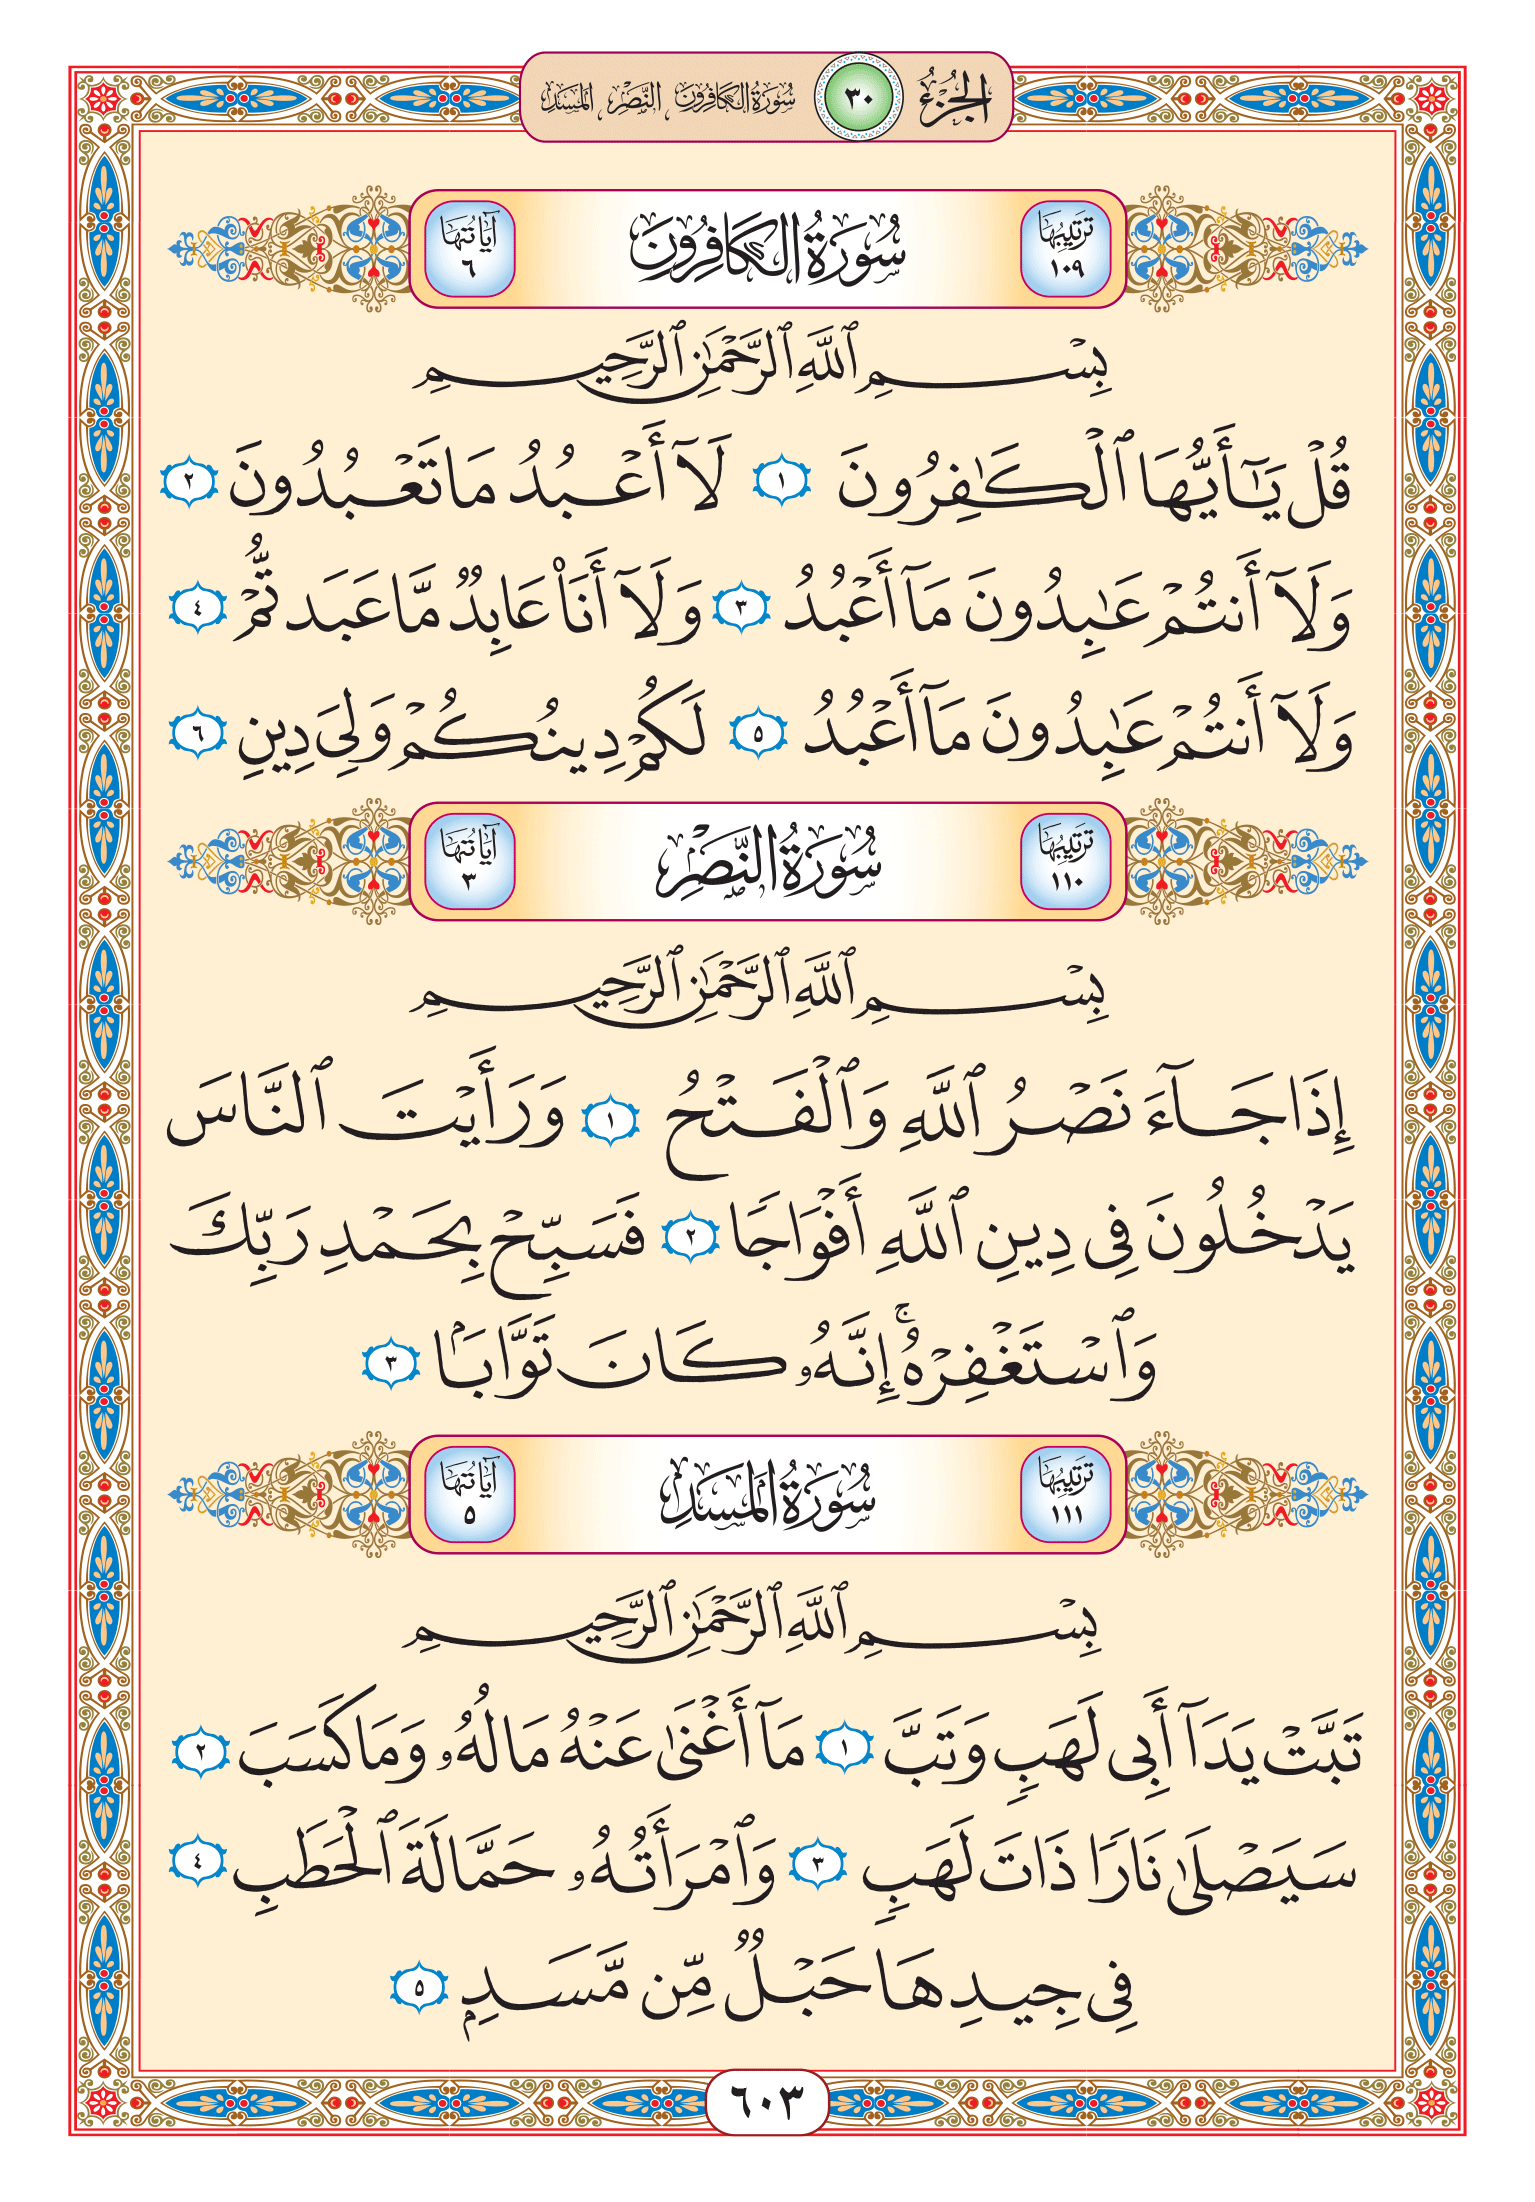 الجزء ٣٠ سورة الكافرون النصر المسد
ترتيبها ١٠٩ سُورَةُ الكَافِرُونَ آياتها ٦
بِسْمِ ٱللَّهِ ٱلرَّحْمَٰنِ ٱلرَّحِيمِ
قُلْ يَٰٓأَيُّهَا ٱلْكَٰفِرُونَ ١ لَآ أَعْبُدُ مَا تَعْبُدُونَ ٢
وَلَآ أَنتُمْ عَٰبِدُونَ مَآ أَعْبُدُ ٣ وَلَآ أَنَا۠ عَابِدٌ مَّا عَبَدتُّمْ ٤
وَلَآ أَنتُمْ عَٰبِدُونَ مَآ أَعْبُدُ ٥ لَكُمْ دِينُكُمْ وَلِىَ دِينِ ٦
ترتيبها ١١٠ سُورَةُ النَّصْرِ آياتها ٣
بِسْمِ ٱللَّهِ ٱلرَّحْمَٰنِ ٱلرَّحِيمِ
إِذَا جَآءَ نَصْرُ ٱللَّهِ وَٱلْفَتْحُ ١ وَرَأَيْتَ ٱلنَّاسَ
يَدْخُلُونَ فِى دِينِ ٱللَّهِ أَفْوَاجًا ٢ فَسَبِّحْ بِحَمْدِ رَبِّكَ
وَٱسْتَغْفِرْهُ ۚ إِنَّهُۥ كَانَ تَوَّابًۢا ٣
ترتيبها ١١١ سُورَةُ المَسَدِ آياتها ٥
بِسْمِ ٱللَّهِ ٱلرَّحْمَٰنِ ٱلرَّحِيمِ
تَبَّتْ يَدَآ أَبِى لَهَبٍ وَتَبَّ ١ مَآ أَغْنَىٰ عَنْهُ مَالُهُۥ وَمَا كَسَبَ ٢
سَيَصْلَىٰ نَارًا ذَاتَ لَهَبٍ ٣ وَٱمْرَأَتُهُۥ حَمَّالَةَ ٱلْحَطَبِ ٤
فِى جِيدِهَا حَبْلٌ مِّن مَّسَدٍۭ ٥
٦٠٣